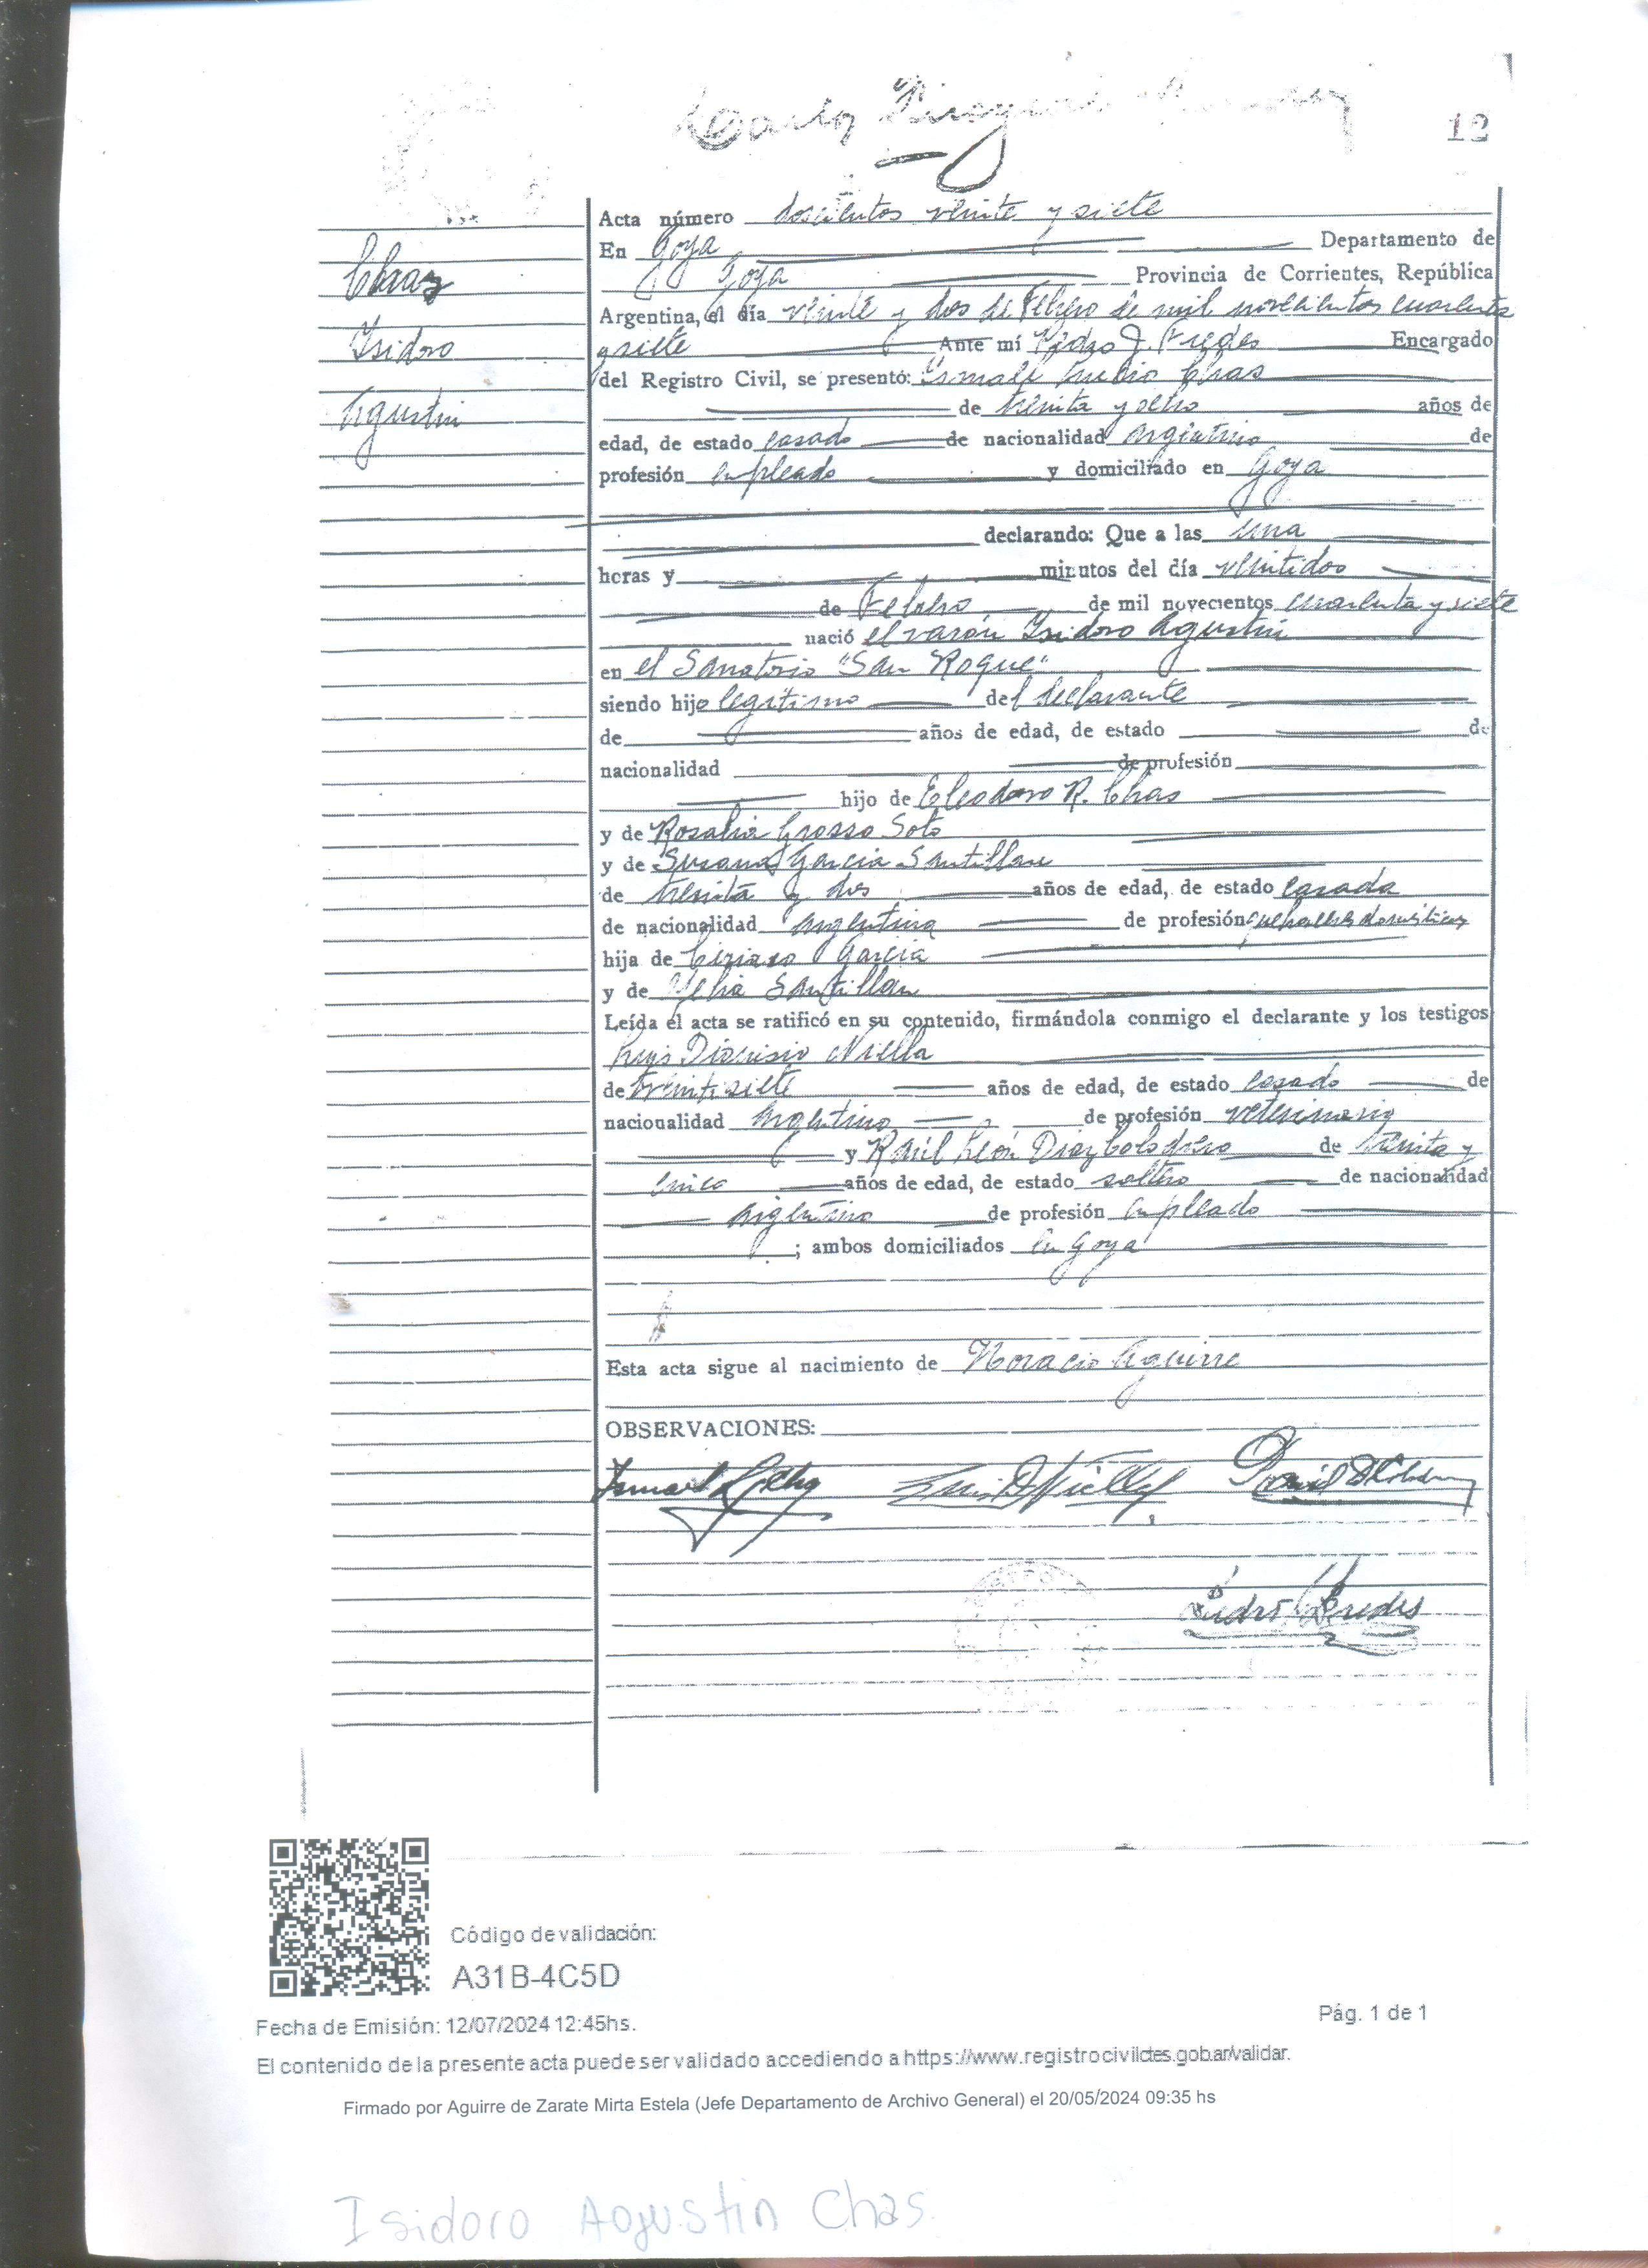 12
Acta número doscientos veinte y siete
En Goya Departamento de
Goya Provincia de Corrientes, República
Chas
Argentina, el día veinte y dos de Febrero de mil novecientos cuarenta
Isidoro
y siete Ante mí Pedro J. Fredes Encargado
del Registro Civil, se presentó: Ismael Chas
Agustin
de treinta y ocho años de
edad, de estado casado de nacionalidad argentino de
profesión empleado y domiciliado en Goya
declarando: Que a las una
horas y minutos del día veintidos
de Febrero de mil novecientos cuarenta y siete
nació el varón Isidoro Agustin
en el Sanatorio "San Roque"
siendo hijo legitimo del declarante
de años de edad, de estado de
nacionalidad de profesión
hijo de Eleodoro R. Chas
y de Rosalia Grosso Soto
y de Susana Garcia Santillan
de treinta y dos años de edad, de estado casada
de nacionalidad argentina de profesión quehaceres domésticos
hija de Ciriaco Garcia
y de Santillan
Leída el acta se ratificó en su contenido, firmándola conmigo el declarante y los testigos
Luis Dionisio Niella
de treinti siete años de edad, de estado casado de
nacionalidad argentino de profesión veterinario
y Raúl León Diaz Colodrero de treinta y
cinco años de edad, de estado soltero de nacionalidad
argentino de profesión empleado
; ambos domiciliados en Goya
Esta acta sigue al nacimiento de Horacio Aguirre
OBSERVACIONES:
Pedro J. Fredes
Código de validación:
A31B-4C5D
Fecha de Emisión: 12/07/2024 12:45hs.
Pág. 1 de 1
El contenido de la presente acta puede ser validado accediendo a https://www.registrocivilctes.gob.ar/validar.
Firmado por Aguirre de Zarate Mirta Estela (Jefe Departamento de Archivo General) el 20/05/2024 09:35 hs
Isidoro Agustin Chas